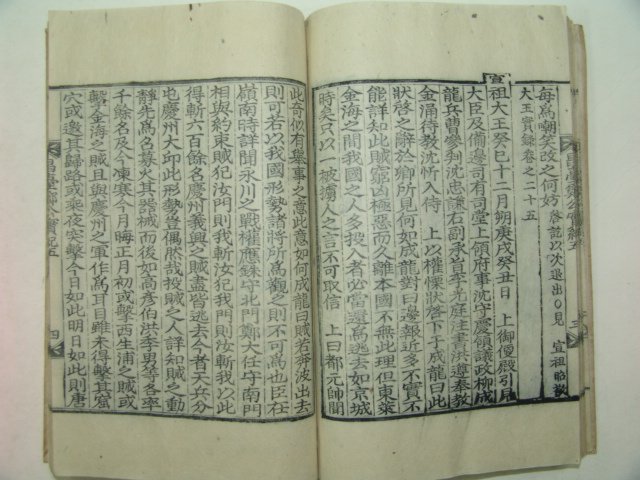 每爲嘲笑改之何妨 啓記以次退出○見 宣祖昭敬
大王實錄卷之二十五
宣祖大王癸巳十二月朔庚戌癸丑日 上御便殿引見
大臣及備邊司有司堂上領府事沈守慶領議政柳成
龍兵曹參判沈忠謙右副承旨李光庭注書洪遵奉敎
金涌待敎沈忻入侍 上以權慄狀啓下于成龍曰此
狀啓之辭於卿所見何如成龍對曰邊報近多不實不
能詳知此賊窮凶極惡而久離本國不無此理但東萊
金海之間我國之人多投入者必當還爲逃去如京城
時矣只以一被擄人之言不可取信 上曰都元帥聞
此奇似有擧事之意此意如何成龍曰賊若奔波出去
則可若以我國形勢諸將所爲觀之則不可爲也臣在
嶺南時詳聞永川之戰權應銖守北門鄭大任守南門
相與約束賊犯汝門則我斬汝犯我門則汝斬我以此
得斬六百餘名慶州義興之賊盡皆逃去今者天兵分
屯慶州大邱此形勢豈偶然哉投賊之人詳知賊之動
靜先爲召募火其器械而後如高彦伯洪李男等各率
千餘名及今凍寒今月晦正月初或擊西生浦之賊或
擊金海之賊且與慶州之軍作爲耳目雖未得擊其窟
穴或邀其歸路或乘夜突擊今日如此明日如此則唐